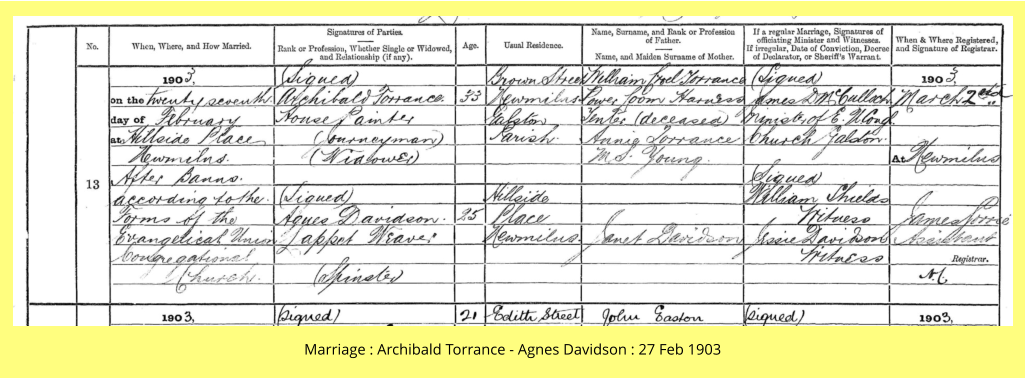 No.
When, Where, and How Married.
Signatures of Parties.
Rank or Profession, Whether Single or Widowed, and Relationship (if any).
Age.
Usual Residence.
Name, Surname, and Rank or Profession of Father.
Name, and Maiden Surname of Mother.
If a regular Marriage, Signatures of officiating Minister and Witnesses.
If irregular, Date of Conviction, Decree of Declarator, or Sheriff's Warrant.
When & Where Registered, and Signature of Registrar.
13
1903,
on the twenty seventh
day of February
at Hillside Place
Newmilns.
After Banns.
according to the
Forms of the
Evangelical Union
Congregational
Church.
(Signed)
Archibald Torrance.
House Painter
(Journeyman)
(Widower)
(Signed)
Agnes Davidson.
Lappet Weaver
(Spinster)
33
25
Brown Street
Newmilns
Galston
Parish.
Hillside
Place
Newmilns.
William Torrance
Power Loom Harness
Tenter (deceased)
Annie Torrance
M.S. Young.
Janet Davidson
(Signed)
James D. McCulloch
Minister of E. U. Cong.
Church Galston.
(Signed)
William Shields
Witness
Jessie Davidson
Witness
1903,
March 2nd
At Newmilns
James
Assistant
Registrar.
1903,
(signed)
21
Edith Street
John Easton
(signed)
1903,
Marriage : Archibald Torrance - Agnes Davidson : 27 Feb 1903